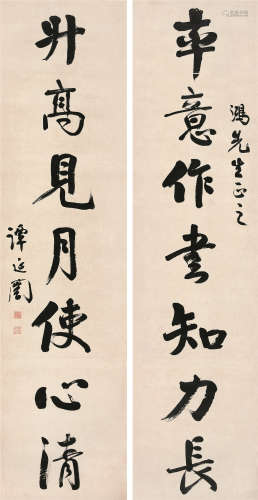 率意作書知力長
鴻先生正之
升高見月使心清
譚延闓